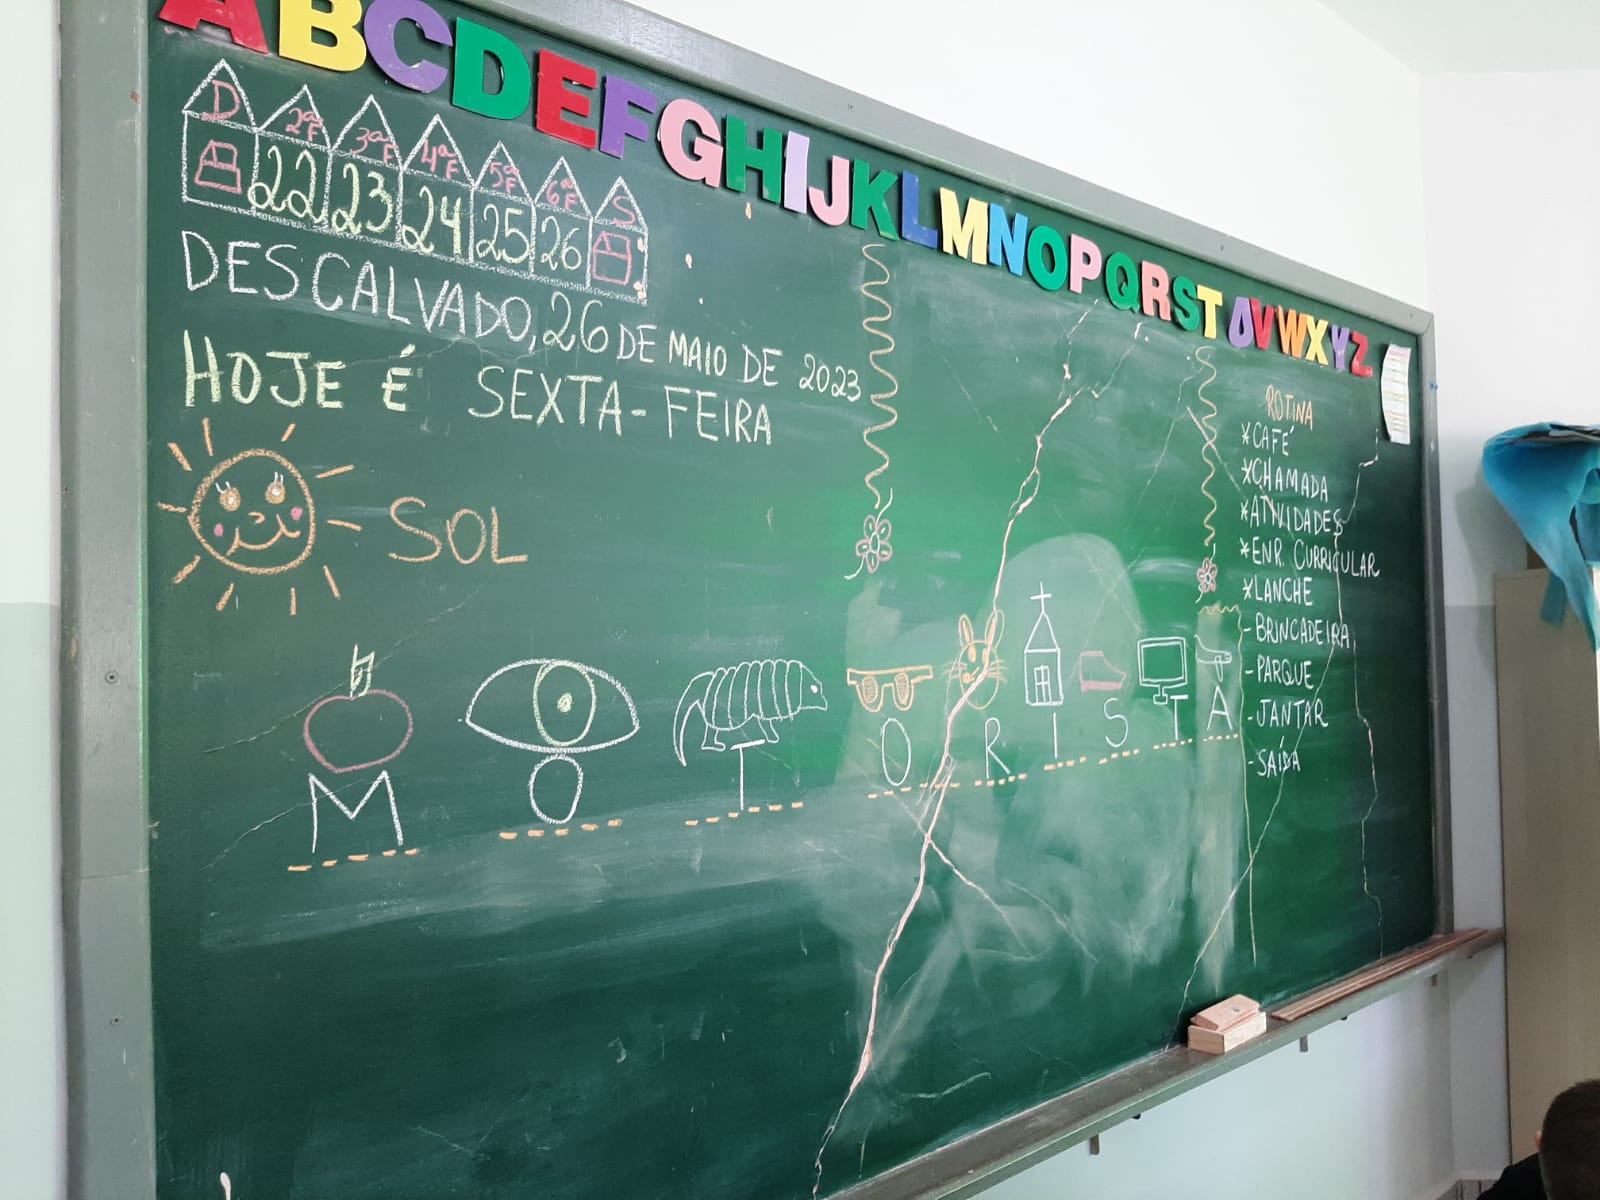 ABCDEFGHIJKLMNOPQRSTUVWXYZ
D 2ªF 3ªF 4ªF 5ªF 6ªF S
22 23 24 25 26
DESCALVADO, 26 DE MAIO DE 2023
HOJE É SEXTA-FEIRA
SOL
M O T O R I S T A
ROTINA
*CAFÉ
*CHAMADA
*ATIVIDADES
*ENR. CURRICULAR
*LANCHE
-BRINCADEIRA
-PARQUE
-JANTAR
-SAÍDA